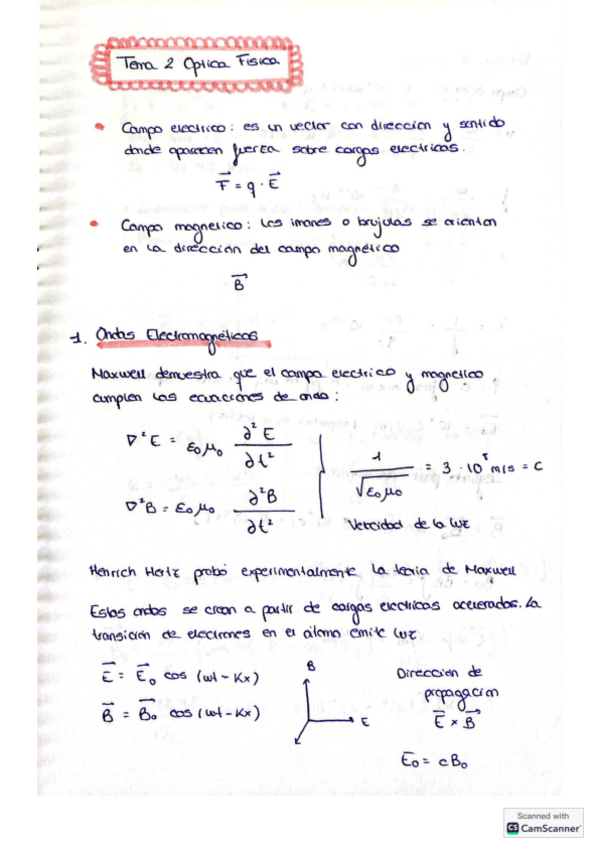 Tema 2 Optica Fisica
• Campo electrico: es un vector con direccion y sentido
donde aparecen fuerza sobre cargas electricas.
F⃗ = q · E⃗
• Campo magnetico: los imanes o brujulas se orientan
en la dirección del campo magnético
B⃗
1. Ondas Electromagnéticas
Maxwell demuestra que el campo electrico y magnetico
cumplen las ecuaciones de onda:
∇²E = ε₀μ₀ ∂²E/∂t²
1/√ε₀μ₀ = 3 · 10⁸ m/s = c
∇²B = ε₀μ₀ ∂²B/∂t²
Velocidad de la luz
Henrich Hertz probó experimentalmente la teoria de Maxwell
Estas ondas se crean a partir de cargas electricas aceleradas. La
transición de electrones en el atomo emite luz
E⃗ = E⃗₀ cos (wt - Kx)
B⃗ = B⃗₀ cos (wt - Kx)
B
E
Direccion de
propagacion
E⃗ × B⃗
E₀ = cB₀
Scanned with
CS CamScanner